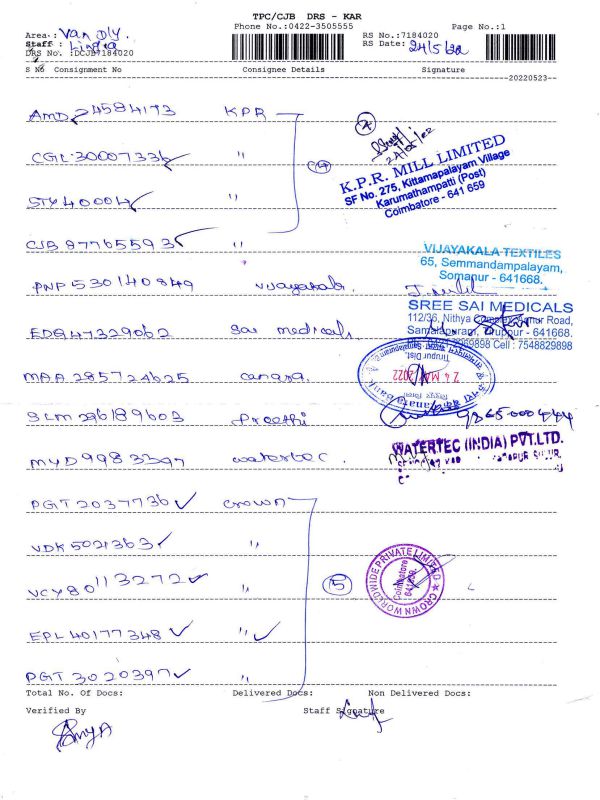 TPC/CJB DRS - KAR
Phone No.:0422-3505555 Page No.:1
Area : Van Dly. RS No.:7184020
Staff : Linga RS Date: 24/5/22
DRS No. :DCJB7184020
S No Consignment No Consignee Details Signature
20220523--
AMD 24584173 KPR
CGL 30007336 "
24/05/22
K.P.R. MILL LIMITED
SF No. 275, Kittamapalayam Village
Karumathampatti (Post)
Coimbatore - 641 659
STY 40004 "
CJB 87765593 "
VIJAYAKALA TEXTILES
65, Semmandampalayam,
Somanur - 641668.
PNP 530140849 Vijayakala.
SREE SAI MEDICALS
112/36, Nithya Complex, Road,
Samalapuram, Tiruppur - 641668.
Cell : 7548829898
EDG 47329062 Sai medicals
MAA 285724625 canara.
Tirupur Dist.
24 MAY 2022
Canara Bank
SLM 296189603 Preethi 9865000444
MYD 9983397 watertec.
WATERTEC (INDIA) PVT.LTD.
PGT 2037736 crown
VDK 5021363 "
VCY 80113272 "
5
CROWN WORLDWIDE PRIVATE LIMITED
Coimbatore
EPL 40177348 "
PGT 3020397 "
Total No. Of Docs: Delivered Docs: Non Delivered Docs:
Verified By Staff Signature